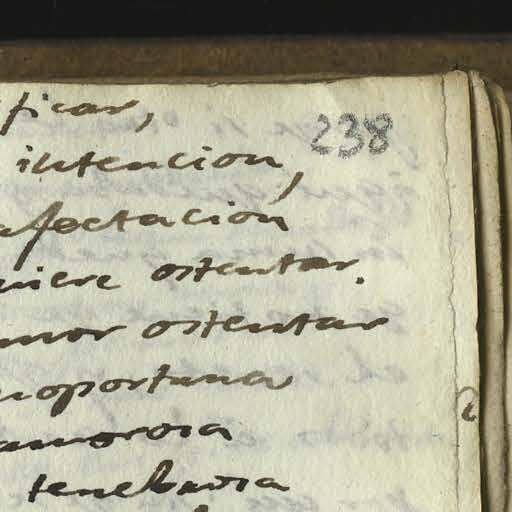 ficar,
238
intencion,
afectación
uiere ostentar.
mor ostentar
noportuna
amorosa
tenebrosa